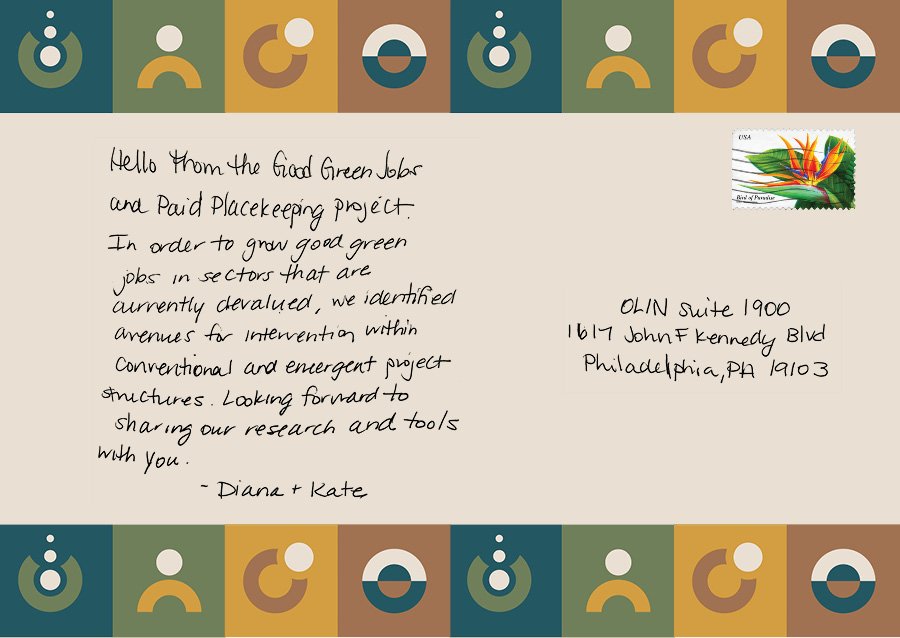 Hello from the Good Green Jobs
and Paid Placekeeping project.
In order to grow good green
jobs in sectors that are
currently devalued, we identified
avenues for intervention within
conventional and emergent project
structures. Looking forward to
sharing our research and tools
with you.
- Diana + Kate
USA
Bird of Paradise
OLIN Suite 1900
1617 John F Kennedy Blvd
Philadelphia, PA 19103